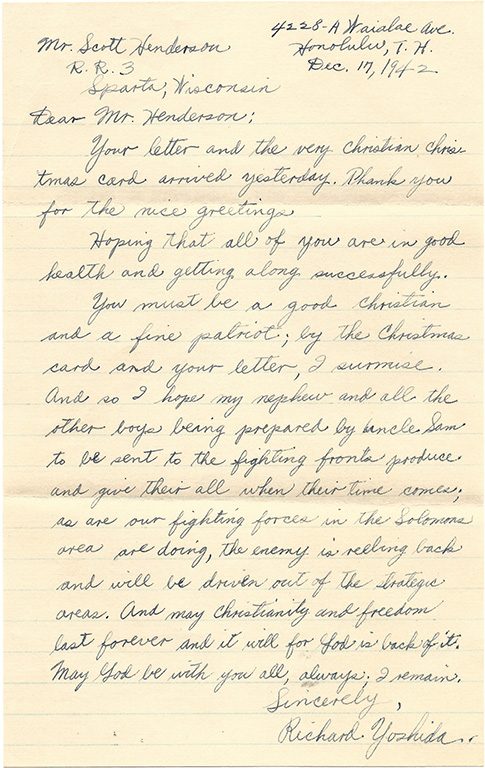 4228-A Waialae Ave.
Mr. Scott Henderson
Honolulu, T. H.
R. R. 3
Dec. 17, 1942
Sparta, Wisconsin
Dear Mr. Henderson;
Your letter and the very christian chris-
tmas card arrived yesterday. Thank you
for the nice greetings
Hoping that all of you are in good
health and getting along successfully.
You must be a good christian
and a fine patriot; by the Christmas
card and your letter, I surmise.
And so I hope my nephew and all the
other boys being prepared by Uncle Sam
to be sent to the fighting fronts produce
and give their all when their time comes;
as are our fighting forces in the Solomons
area are doing, the enemy is reeling back
and will be driven out of the strategic
areas. And may christianity and freedom
last forever and it will for God is back of it.
May God be with you all, always. I remain.
Sincerely,
Richard Yoshida.